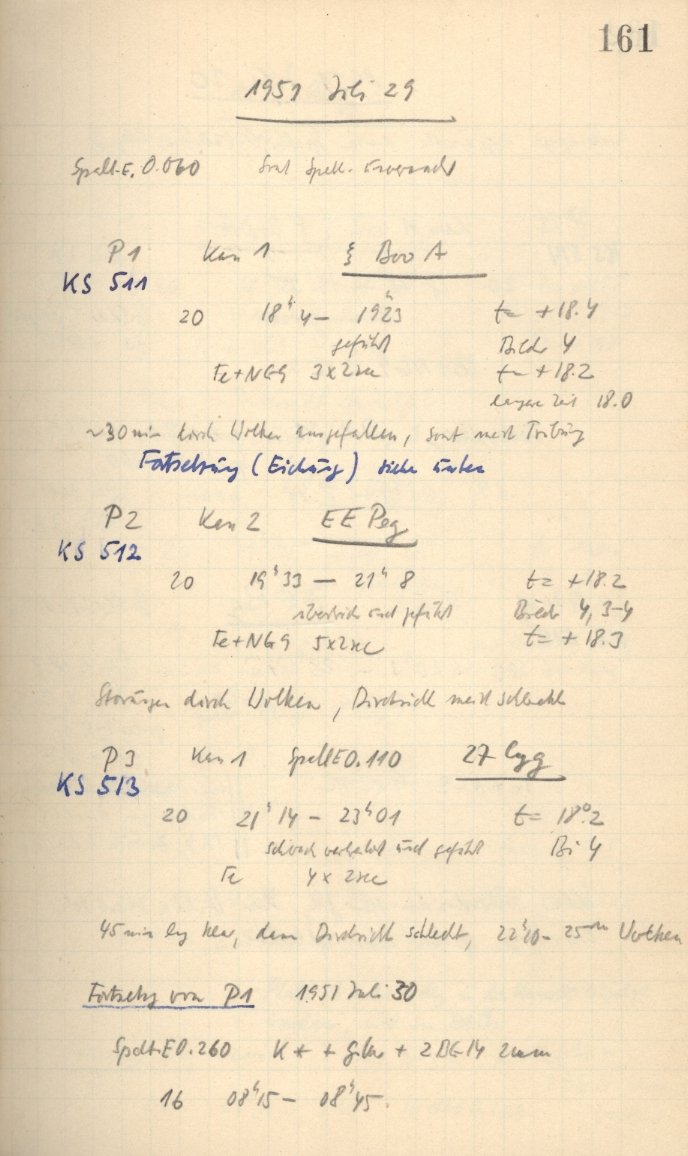 161
1951 Juli 29
Spalt-E. 0.060 Sonst Spalt. unverändert
P1 Kam 1 ξ Boo A
KS 511
20 18ʰ 4 – 19ʰ23 t = +18.4
geführt Bilder 4
Fe+NG9 3x2sec t = +18.2
18.0
~30 min durch Wolken ausgefallen, sonst meist Trübung
Fortsetzung (Eichung) siehe unten
P2 Kam 2 EE Peg
KS 512
20 19ʰ33 – 21ʰ 8 t = +18.2
und geführt Bilder 4, 3–4
Fe+NG9 5x2sec t = +18.3
Störungen durch Wolken, Durchsicht meist schlecht
P3 Kam 1 Spalt E 0.110 27 Cyg
KS 513
20 21ʰ 14 – 23ʰ01 t = 18°.2
schwach und geführt Bi 4
Fe 4x 2sec
45 min klar, dann Durchsicht schlecht, 22ʰ20 – 25ᵐ Wolken
Fortsetzg von P1 1951 Juli 30
Spalt-E 0.260 K + + 2 BG 14 2mm
16 08ʰ15 – 08ʰ45.